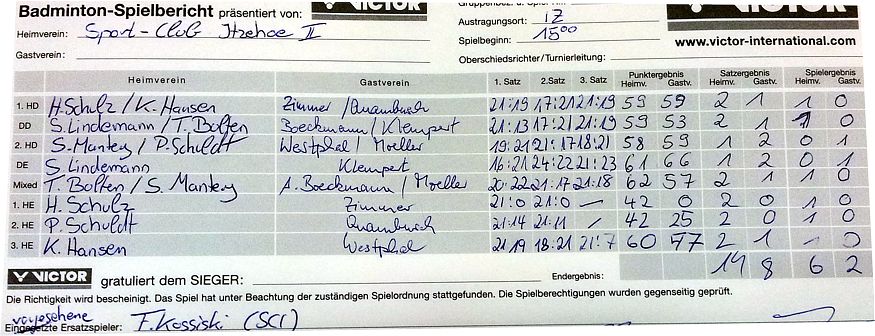 Badminton-Spielbericht präsentiert von: VICTOR
Austragungsort: IZ
Heimverein: Sport-Club Itzehoe II
Spielbeginn: 15⁰⁰
www.victor-international.com
Gastverein:
Oberschiedsrichter/Turnierleitung:
Heimverein Gastverein 1. Satz 2. Satz 3. Satz Punktergebn Heimv. Gastv. Satzergebn. Heimv. Gastv. Spielergebn. Heimv. Gastv.
1. HD H. Schulz / K. Hansen Zimmer / Quambusch 21:19 17:21 21:19 59 59 2 1 1 0
DD S. Lindemann / T. Bolten Boeckmann / Klempert 21:13 17:21 21:19 59 53 2 1 1 0
2. HD S. Mantey / P. Schuldt Westphal / Moeller 19:21 21:17 18:21 58 59 1 2 0 1
DE S. Lindemann Klempert 16:21 24:22 21:23 61 66 1 2 0 1
Mixed T. Bolten / S. Mantey A. Boeckmann / Moeller 20:22 21:17 21:18 62 57 2 1 1 0
1. HE H. Schulz Zimmer 21:0 21:0 — 42 0 2 0 1 0
2. HE P. Schuldt Quambusch 21:14 21:11 / 42 25 2 0 1 0
3. HE K. Hansen Westphal 21:19 18:21 21:7 60 47 2 1 0
14 8 6 2
VICTOR gratuliert dem SIEGER: Endergebnis:
Die Richtigkeit wird bescheinigt. Das Spiel hat unter Beachtung der zuständigen Spielordnung stattgefunden. Die Spielberechtigungen wurden gegenseitig geprüft.
vorgesehene
Eingesetzte Ersatzspieler: F. Kossiski (SCI)